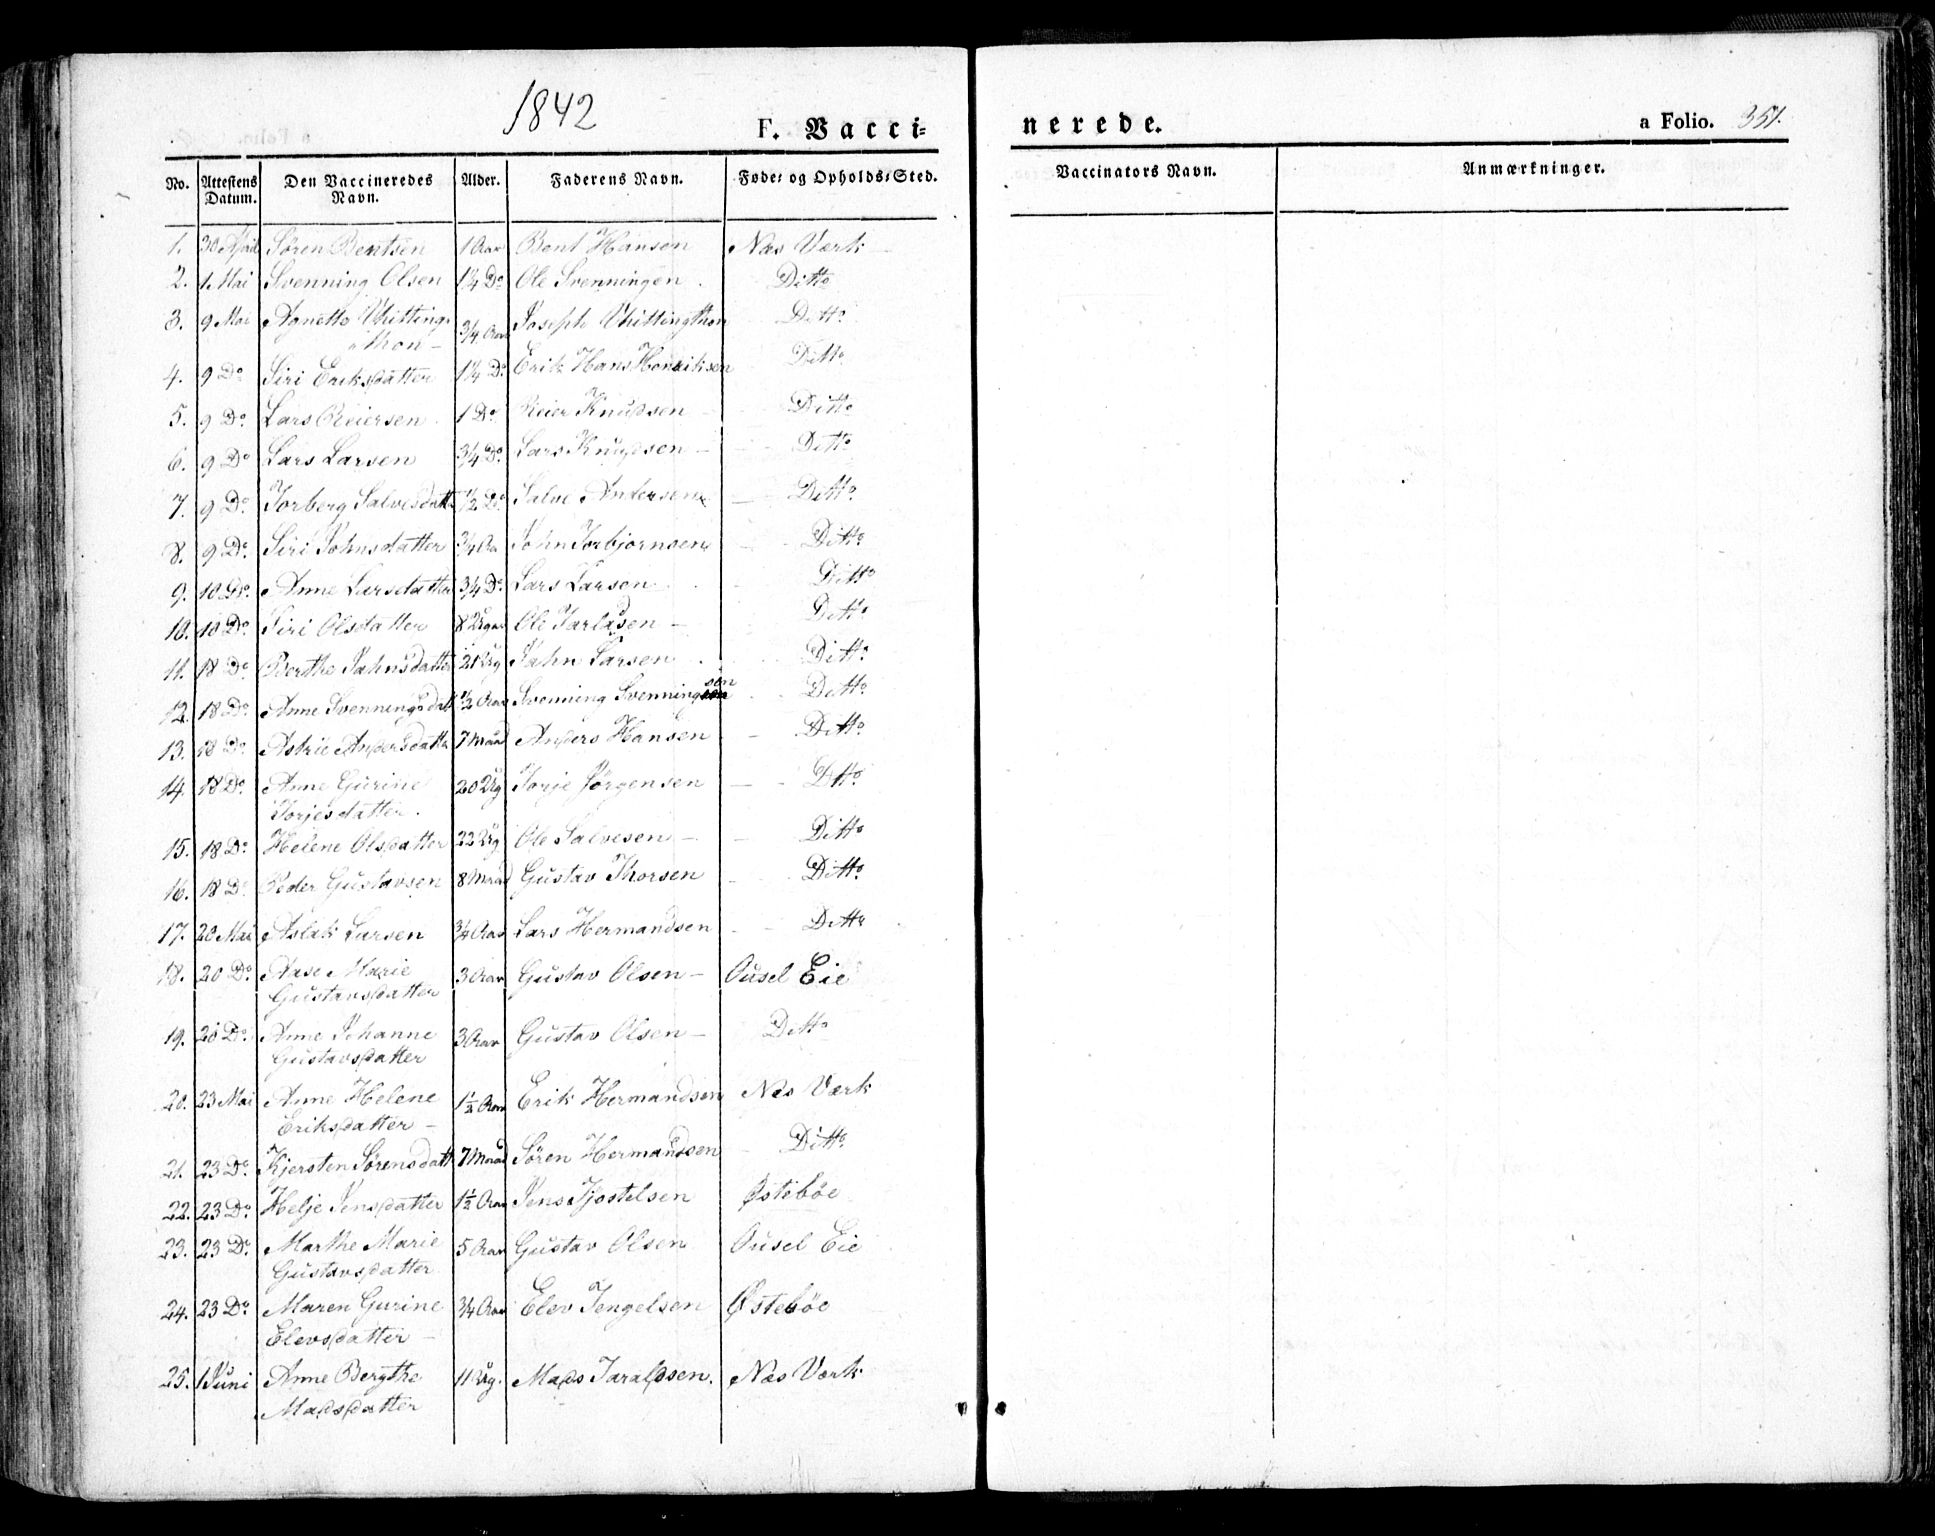 1842
F. Vacci=
nerede.
a Folio. 351.
No. Attestens Datum. Den Vaccineredes Navn. Alder. Faderens Navn. Føde- og Opholds-Sted. Vaccinators Navn. Anmærkninger.
1. 30 April Søren Bentsen 1 Aar Bent Hansen Næs Værk
2. 1. Mai Svenning Olsen 1¼ Do Ole Svenningen Ditto
3. 9 Mai Agnette Whitting-
thon 3/4 Aar Joseph Whittingthon Ditto
4. 9 Do Siri Eriksdatter 1¼ Do Erik Hans Henriksen Ditto
5. 9 Do Lars Reiersen 1 Do Reier Knudsen Ditto
6. 9 Do Lars Larsen 3/4 Do Lars Knudsen Ditto
7. 9 Do Torberg Salvesdatter 1/2 Do Salve Andersen Ditto
8. 9 Do Siri Johnsdatter 3/4 Aar John Torbjornsen Ditto
9. 10 Do Anne Larsdatter 3/4 Do Lars Larsen Ditto
10. 10 Do Siri Olsdatter 8 Uger Ole Tarldsen Ditto
11. 18 Do Berthe Jahnsdatter 21 Ug Jahn Larsen Ditto
12. 18 Do Anne Svenningsdatt 1/2 Aar Svenning Svenningsen Ditto
13. 18 Do Astrie Andersdatter 7 Maad Anders Hansen Ditto
14. 18 Do Anne Gurine
Torjesdatter. 20 Ug Torje Jörgensen Ditto
15. 18 Do Helene Olsdatter 22 Ug Ole Salvesen Ditto
16. 18 Do Peder Gustavsen 8 Maad Gustav Thorsen Ditto
17. 20 Mai Aslak Larsen 3/4 Aar Lars Hermandsen Ditto
18. 20 Do Aase Marie
Gustavsdatter 3 Aar Gustav Olsen Ousel Eie
19. 20 Do Anne Johanne
Gustavsdatter 3 Aar Gustav Olsen Ditto
20. 23 Mai Anne Helene
Eriksdatter 1½ Aar Erik Hermandsen Næs Værk
21. 23 Do Kjersten Sørensdatt 7 Maad Søren Hermandsen Ditto
22. 23 Do Helje Jensdatter 1½ Aar Jens Tjostelsen Østebøe
23. 23 Do Marthe Marie
Gustavsdatter 5 Aar Gustav Olsen Ousel Eie
24. 23 Do Maren Gurine
Elevsdatter 3/4 Aar Elev Tengelsen Østebøe
25. 1 Juni Anne Bergthe
Madsdatter 11 Ug. Mads Taraldsen. Næs Værk